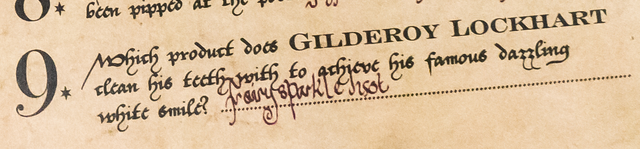 8.* been pipped at the
9.* Which product does GILDEROY LOCKHART
clean his teeth with to achieve his famous dazzling
white smile?